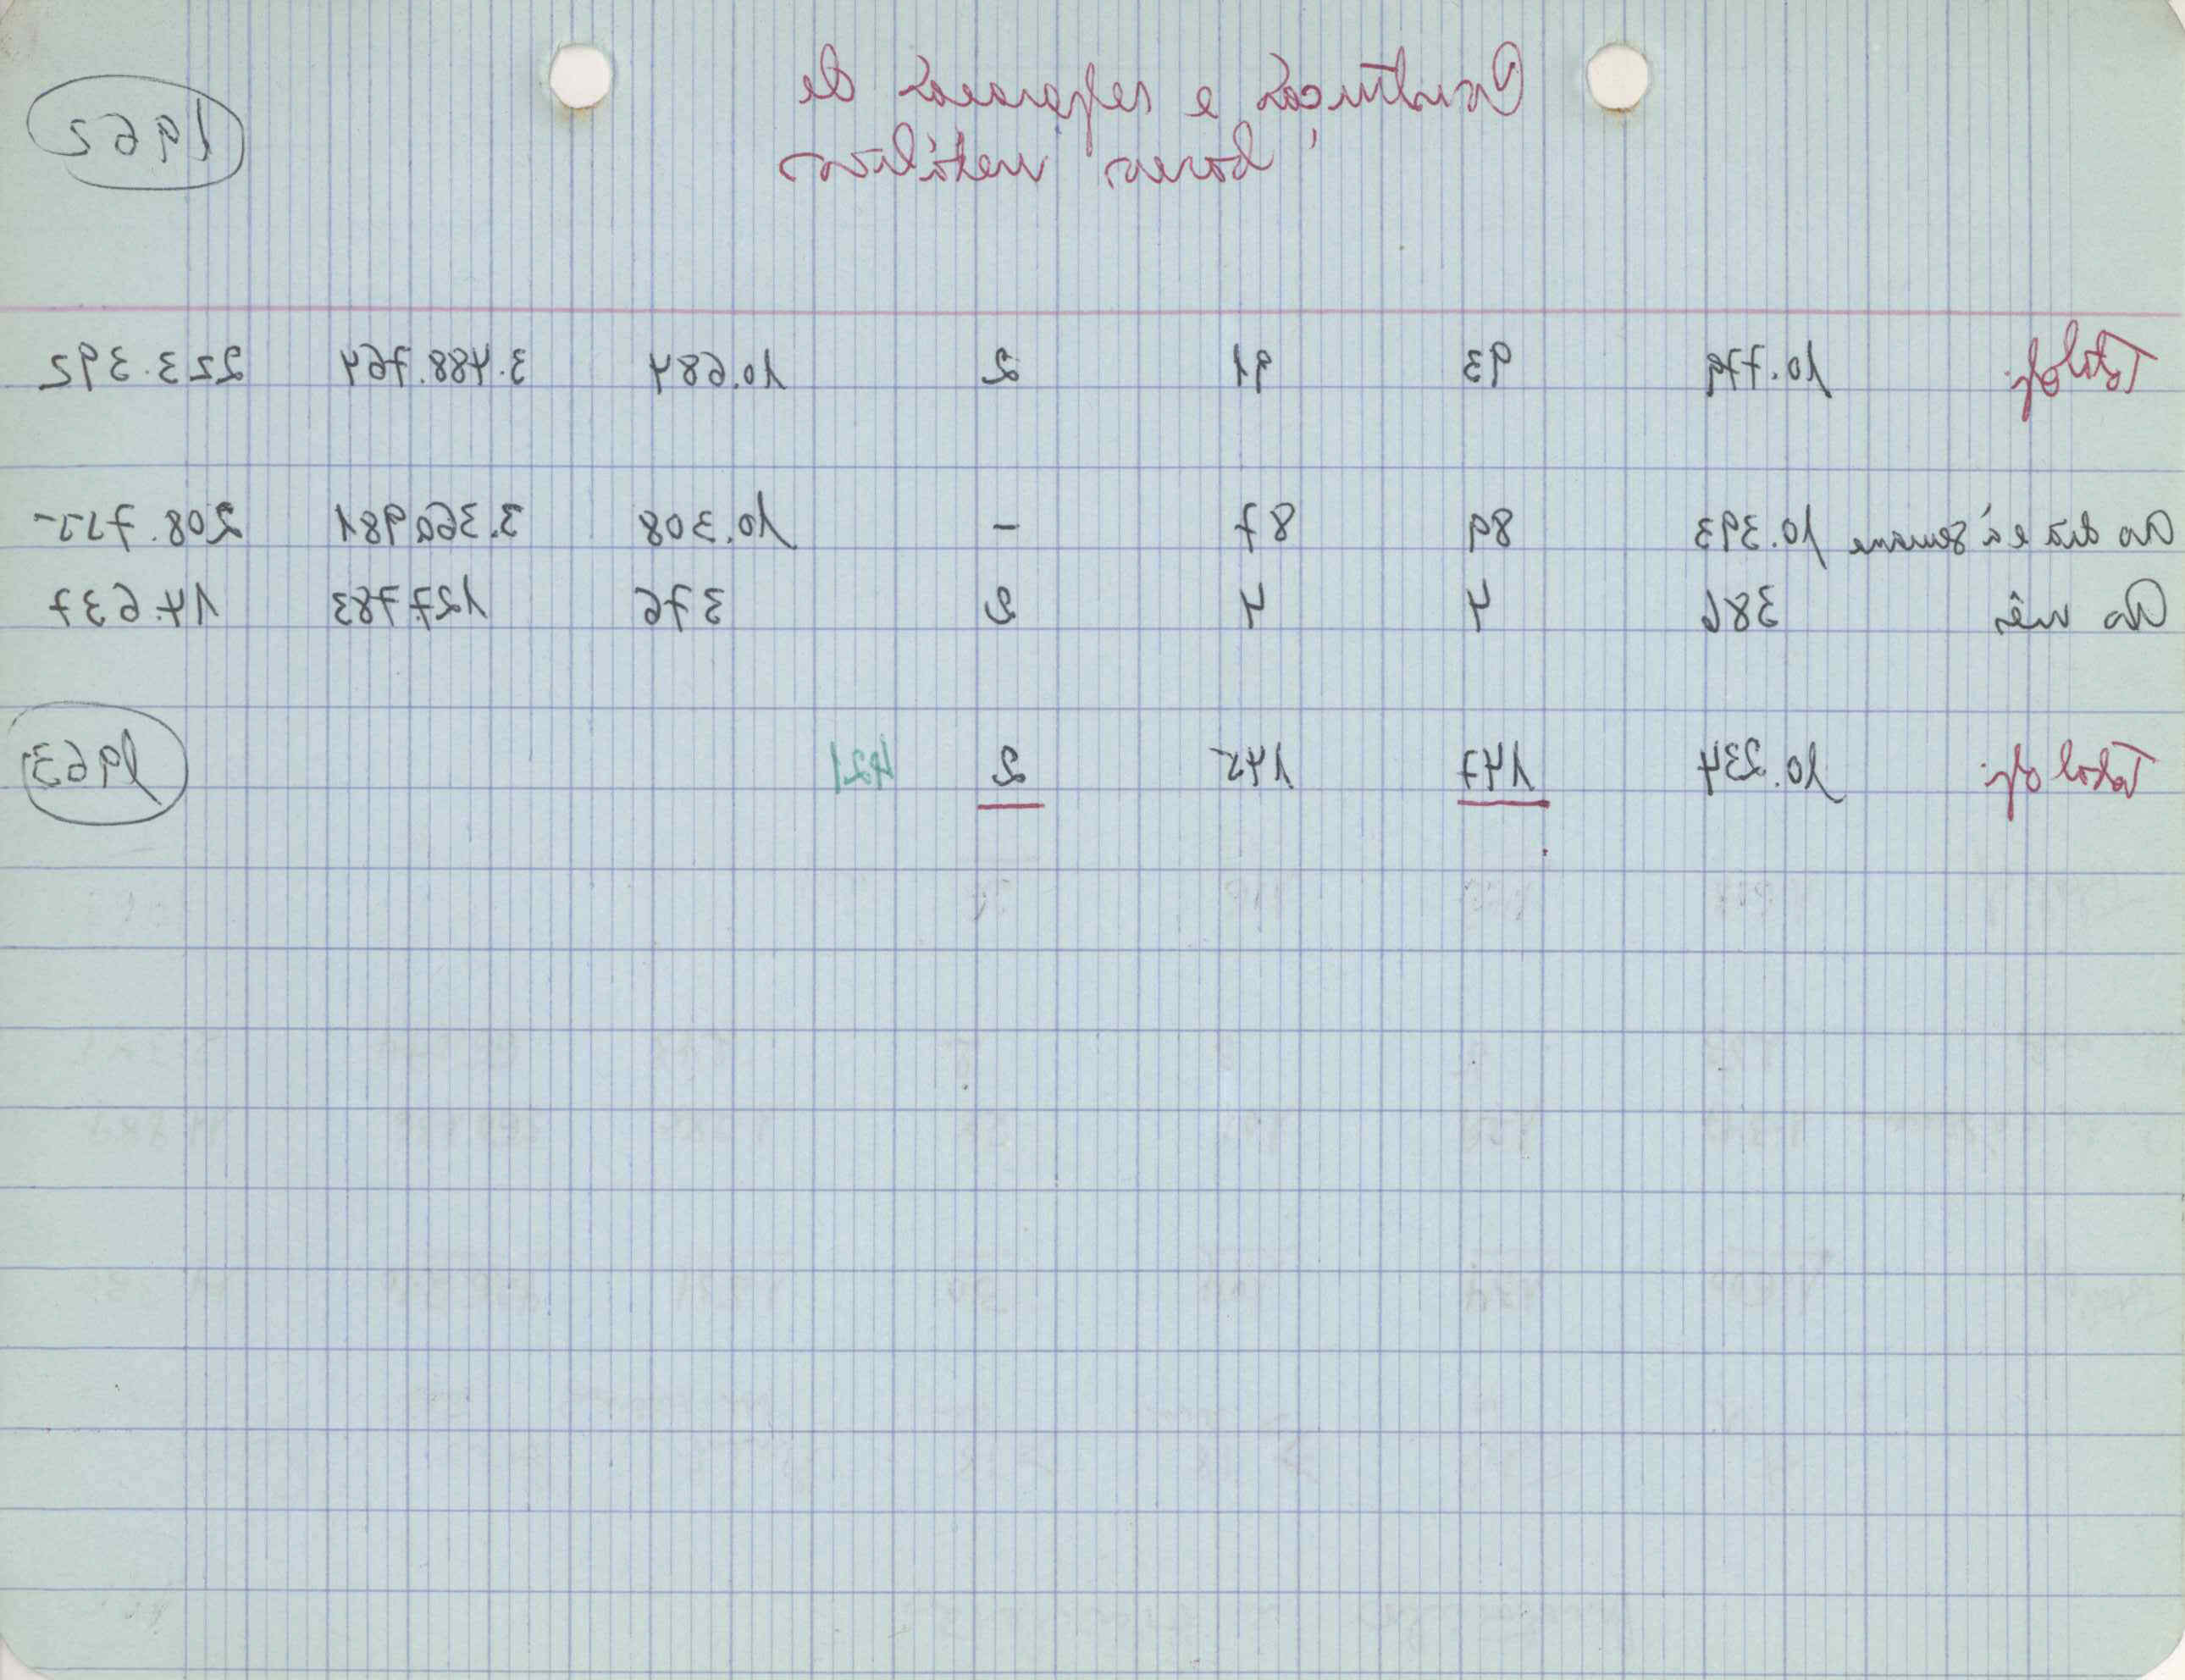 Construção e reparação de
barcos metálicos
1962
Total of. 10.779 93 91 2 10.684 3.488.764 223.392
Ao dia e à semana 10.393 89 87 - 10.308 3.360.981 208.755
Ao mês 386 4 4 2 376 127.783 14.637
Total of. 10.234 147 145 2 421 1963